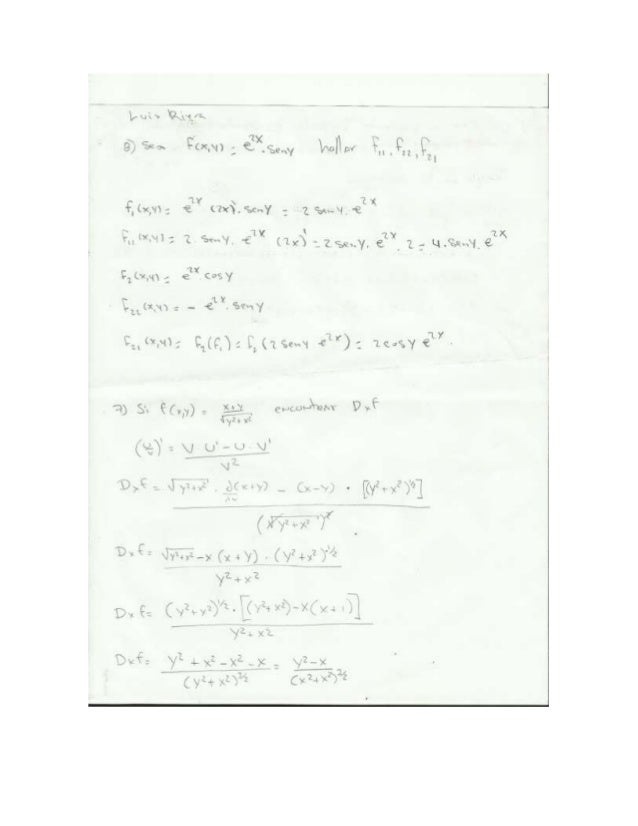 Luis Riera
8) Sea f(x,y) = e^2x . seny hallar f11, f22, f21
f1(x,y) = e^2x (2x)'. seny = 2 seny. e^2x
f11(x,y) = 2. seny. e^2x (2x)' = 2 sen.y. e^2x. 2 = 4. seny. e^2x
f2(x,y) = e^2x. cosy
f22(x,y) = - e^2x. seny
f21(x,y) = f2(f1) = f2(2 seny e^2x) = 2cosy e^2x.
7) Si f(x,y) = x+y / √y²+x² encontrar Dxf
(u/v)' = V U' - U. V' / V²
Dxf = √y²+x² . ∂(x+y) - (x-y) . [(y²+x²)^½] / (√y²+x²)²
Dxf = √y²+x² - x (x+y) . (y²+x²)^-½ / y²+x²
Dxf = (y²+x²)^-½ . [(y²+x²) - x(x+1)] / y²+x²
Dxf = y² + x² - x² - x / (y²+x²)^3/2 = y²-x / (x²+x²)^3/2